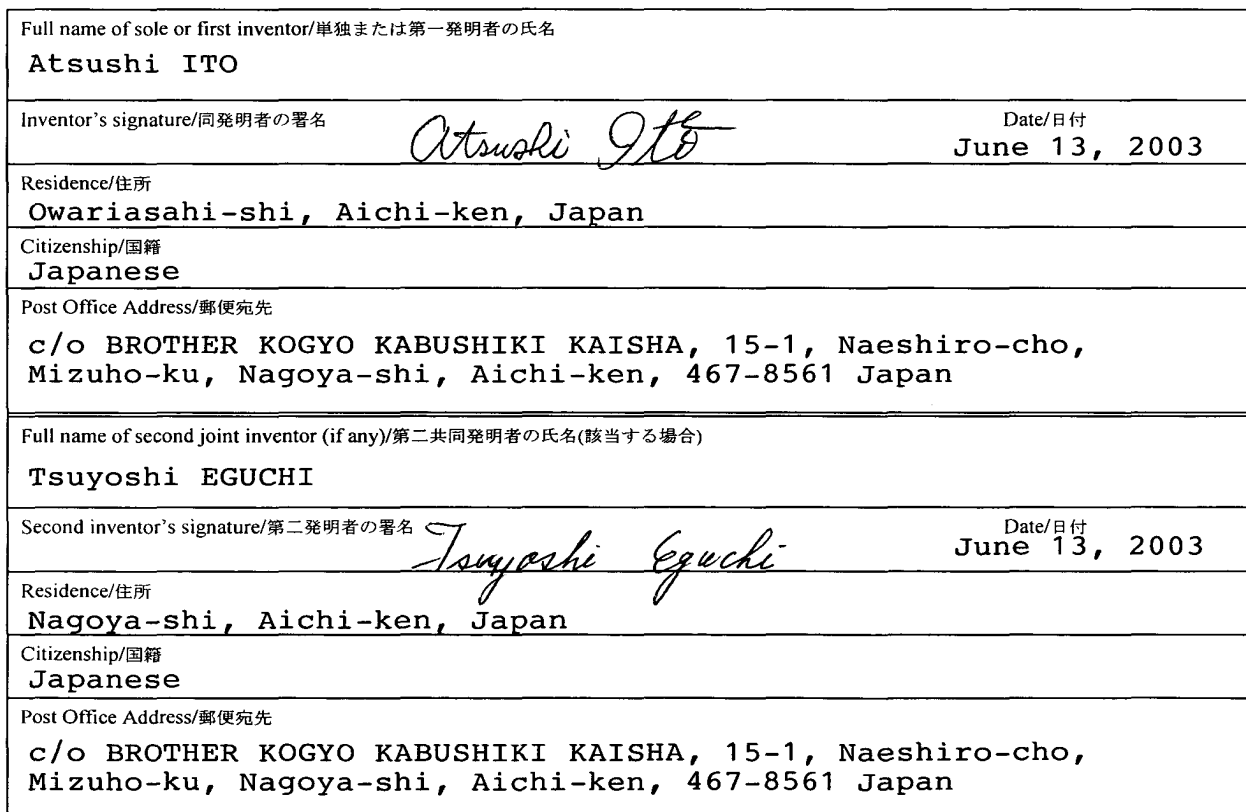 Full name of sole or first inventor/単独または第一発明者の氏名
Atsushi ITO
Inventor's signature/同発明者の署名 Atsushi Itō Date/日付
June 13, 2003
Residence/住所
Owariasahi-shi, Aichi-ken, Japan
Citizenship/国籍
Japanese
Post Office Address/郵便宛先
c/o BROTHER KOGYO KABUSHIKI KAISHA, 15-1, Naeshiro-cho,
Mizuho-ku, Nagoya-shi, Aichi-ken, 467-8561 Japan
Full name of second joint inventor (if any)/第二共同発明者の氏名(該当する場合)
Tsuyoshi EGUCHI
Second inventor's signature/第二発明者の署名 Tsuyoshi Eguchi Date/日付
June 13, 2003
Residence/住所
Nagoya-shi, Aichi-ken, Japan
Citizenship/国籍
Japanese
Post Office Address/郵便宛先
c/o BROTHER KOGYO KABUSHIKI KAISHA, 15-1, Naeshiro-cho,
Mizuho-ku, Nagoya-shi, Aichi-ken, 467-8561 Japan